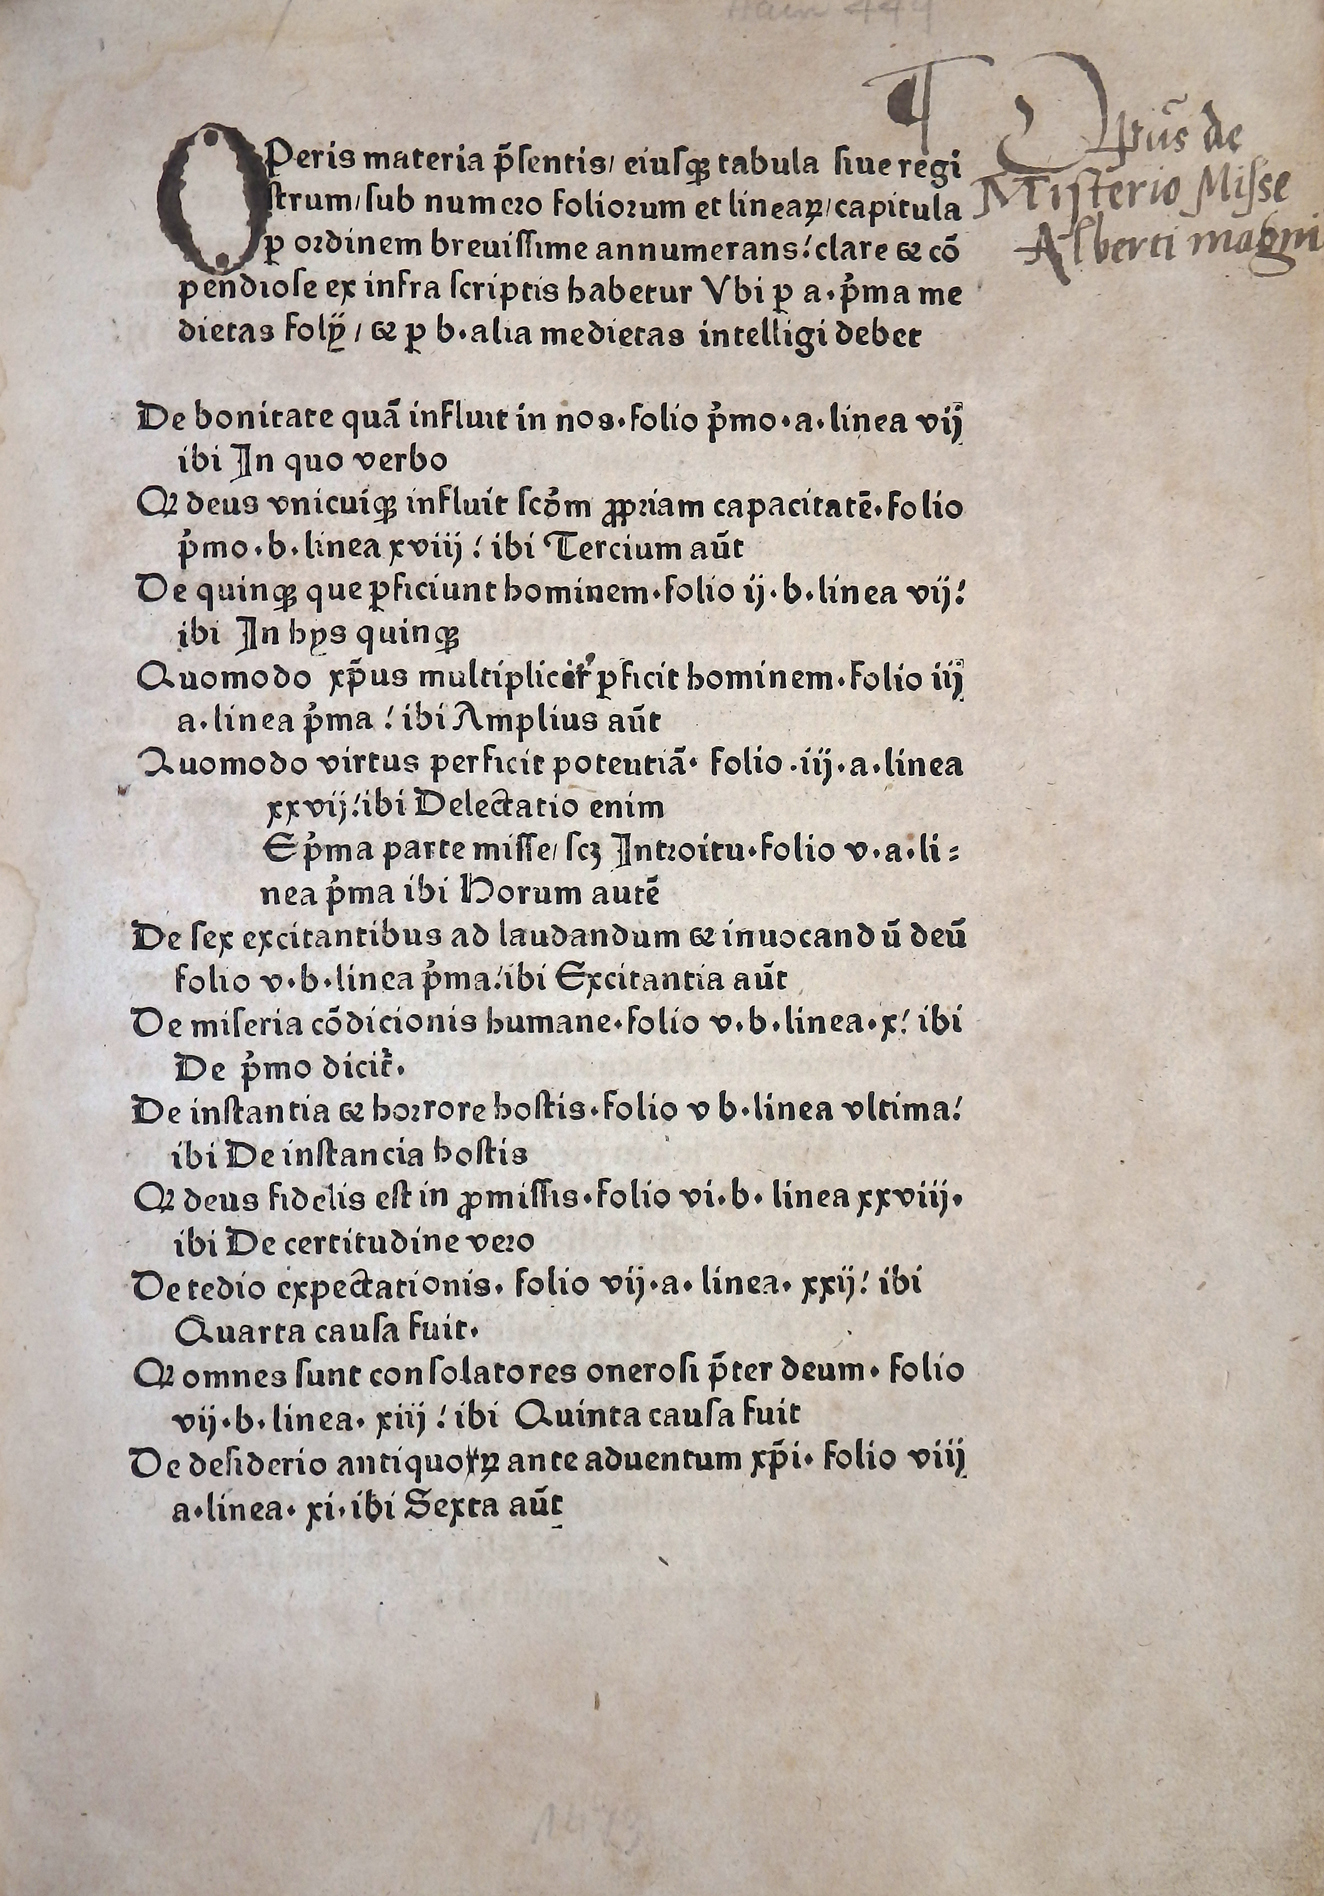 Hain 449
¶ Opus de
Misterio Misse
Alberti magni
OPeris materia p̄sentis/ eiusqꝫ tabula siue regi
strum/sub numero foliorum et lineaꝝ/capitula
ꝑ ordinem breuissime annumerans!clare & cō
pendiose ex infra scriptis habetur Vbi ꝑ a.p̊ma me
dietas folÿ / & ꝑ b.alia medietas intelligi debet
De bonitate quā influit in nos.folio p̊mo.a.linea vij
ibi In quo verbo
Qꝛ deus vnicuiqꝫ influit scd̊m ꝓpriam capacitatē.folio
p̊mo.b.linea xviij ! ibi Tercium aūt
De quinqꝫ que ꝑficiunt hominem.folio ij.b.linea vij!
ibi In hys quinqꝫ
Quomodo xp̄us multiplicit̉ ꝑficit hominem.folio iij
a.linea p̊ma ! ibi Amplius aūt
Quomodo virtus perficit potentiā. folio .iij.a.linea
xxvij!ibi Delectatio enim
E p̊ma parte misse/ scꝫ Introitu.folio v.a.li=
nea p̊ma ibi Horum autē
De sex excitantibus ad laudandum & inuocandū deū
folio v.b.linea p̊ma!ibi Excitantia aūt
De miseria cōdicionis humane.folio v.b.linea.x! ibi
De p̊mo dicit̉.
De instantia & horrore hostis.folio v b.linea vltima!
ibi De instancia hostis
Qꝛ deus fidelis est in ꝓmissis.folio vi.b. linea xxviij.
ibi De certitudine vero
De tedio expectationis. folio vij.a. linea. xxij! ibi
Quarta causa fuit.
Qꝛ omnes sunt consolatores onerosi p̄ter deum. folio
vij.b.linea. xiij ! ibi Quinta causa fuit
De desiderio antiquoꝝ ante aduentum xp̄i. folio viij
a.linea. xi.ibi Sexta aūt
1473